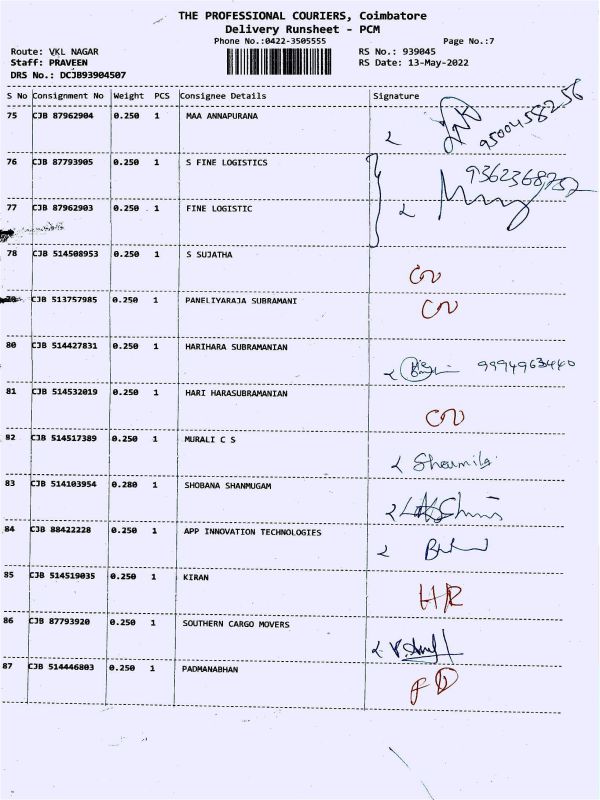 THE PROFESSIONAL COURIERS, Coimbatore
Delivery Runsheet - PCM
Phone No.:0422-3505555 Page No.:7
Route: VKL NAGAR RS No.: 939045
Staff: PRAVEEN RS Date: 13-May-2022
DRS No.: DCJB93904507
S No Consignment No Weight PCS Consignee Details Signature
75 CJB 87962904 0.250 1 MAA ANNAPURANA
9500458256
76 CJB 87793905 0.250 1 S FINE LOGISTICS
77 CJB 87962903 0.250 1 FINE LOGISTIC
78 CJB 514508953 0.250 1 S SUJATHA
CJB 513757985 0.250 1 PANELIYARAJA SUBRAMANI
80 CJB 514427831 0.250 1 HARIHARA SUBRAMANIAN
9994963440
81 CJB 514532019 0.250 1 HARI HARASUBRAMANIAN
82 CJB 514517389 0.250 1 MURALI C S
Sharmila
83 CJB 514103954 0.280 1 SHOBANA SHANMUGAM
84 CJB 88422228 0.250 1 APP INNOVATION TECHNOLOGIES
85 CJB 514519035 0.250 1 KIRAN
HR
86 CJB 87793920 0.250 1 SOUTHERN CARGO MOVERS
87 CJB 514446803 0.250 1 PADMANABHAN